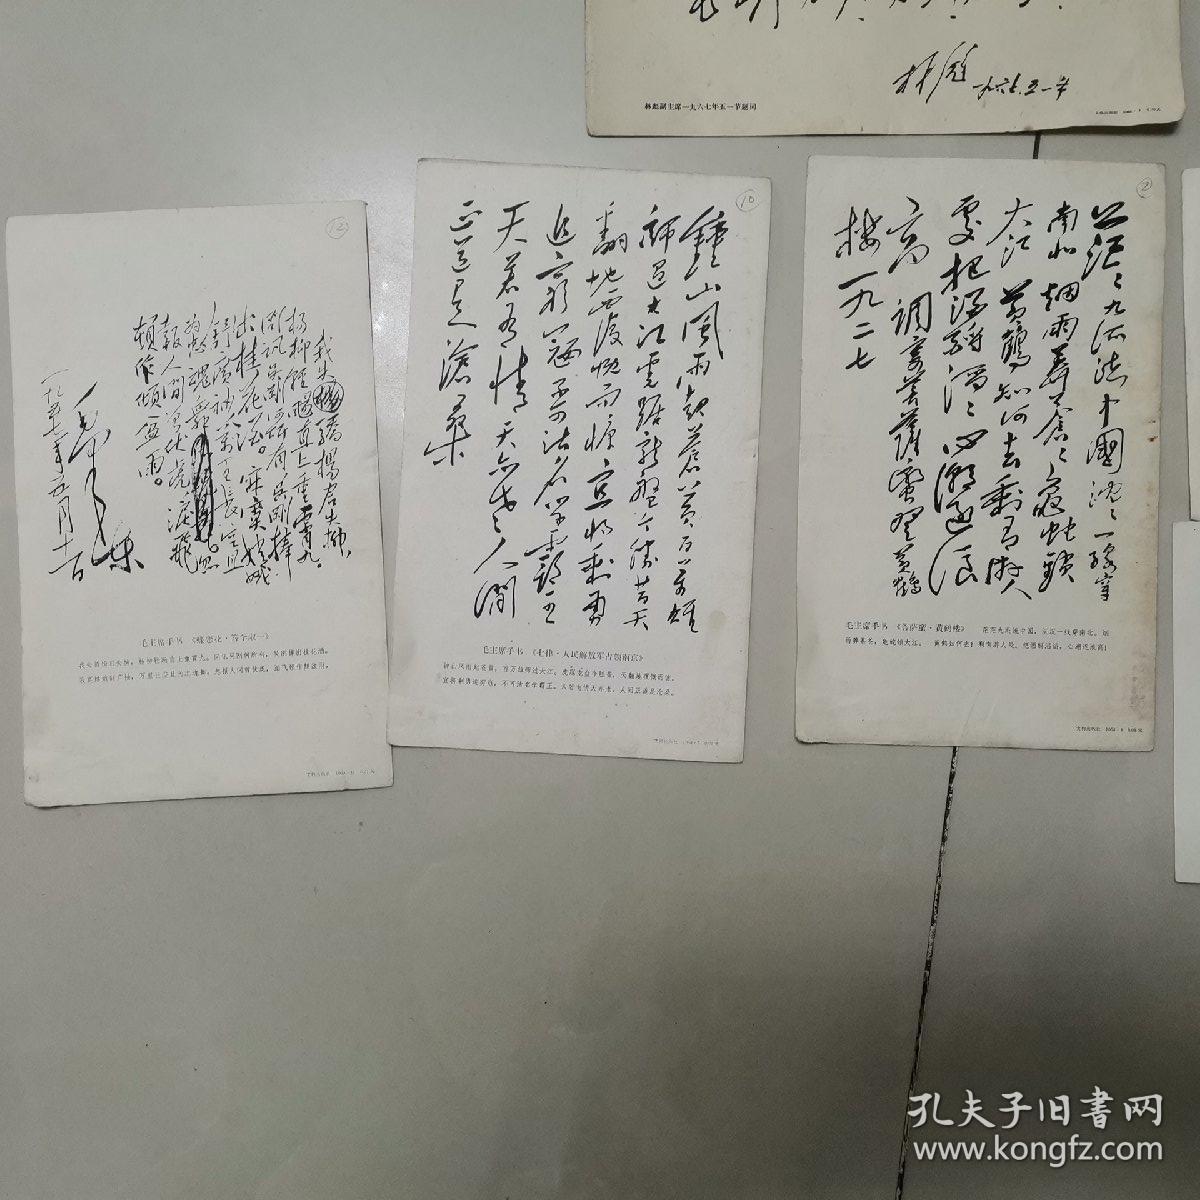 林彪
一九六七.五一节
林彪副主席一九六七年五一节题词
12
我失骄杨君失柳,
杨柳轻飏直上重霄九。
问讯吴刚何所有,吴刚捧
出桂花酒。 寂寞嫦娥
舒广袖,万里长空且
为忠魂舞。忽
报人间曾伏虎,泪飞
顿作倾盆雨。
毛主席手书 《蝶恋花·答李淑一》
我失骄杨君失柳,杨柳轻飏直上重霄九。问讯吴刚何所有,吴刚捧出桂花酒。
寂寞嫦娥舒广袖,万里长空且为忠魂舞。忽报人间曾伏虎,泪飞顿作倾盆雨。
10
鍾山風雨起蒼黃百萬雄
師過大江虎踞龍盤今勝昔天
翻地覆慨而慷宜將剩勇
追窮寇不可沽名學霸王
天若有情天亦老人間
正道是滄桑
毛主席手书 《七律·人民解放军占领南京》
钟山风雨起苍黄,百万雄师过大江。虎踞龙盘今胜昔,天翻地覆慨而慷。
宜将剩勇追穷寇,不可沽名学霸王。天若有情天亦老,人间正道是沧桑。
2
茫茫九派流中國沉沉一線穿
南北烟雨莽蒼蒼龜蛇鎖
大江 黃鶴知何去剩有遊人
處把酒酹滔滔心潮逐浪
高 調寄菩薩蠻登黃鶴
樓 一九二七
毛主席手书 《菩萨蛮·黄鹤楼》 茫茫九派流中国,沉沉一线穿南北。烟
雨莽苍苍,龟蛇锁大江。 黄鹤知何去?剩有游人处。把酒酹滔滔,心潮逐浪高!
文物出版社
孔夫子旧书网
www.kongfz.com